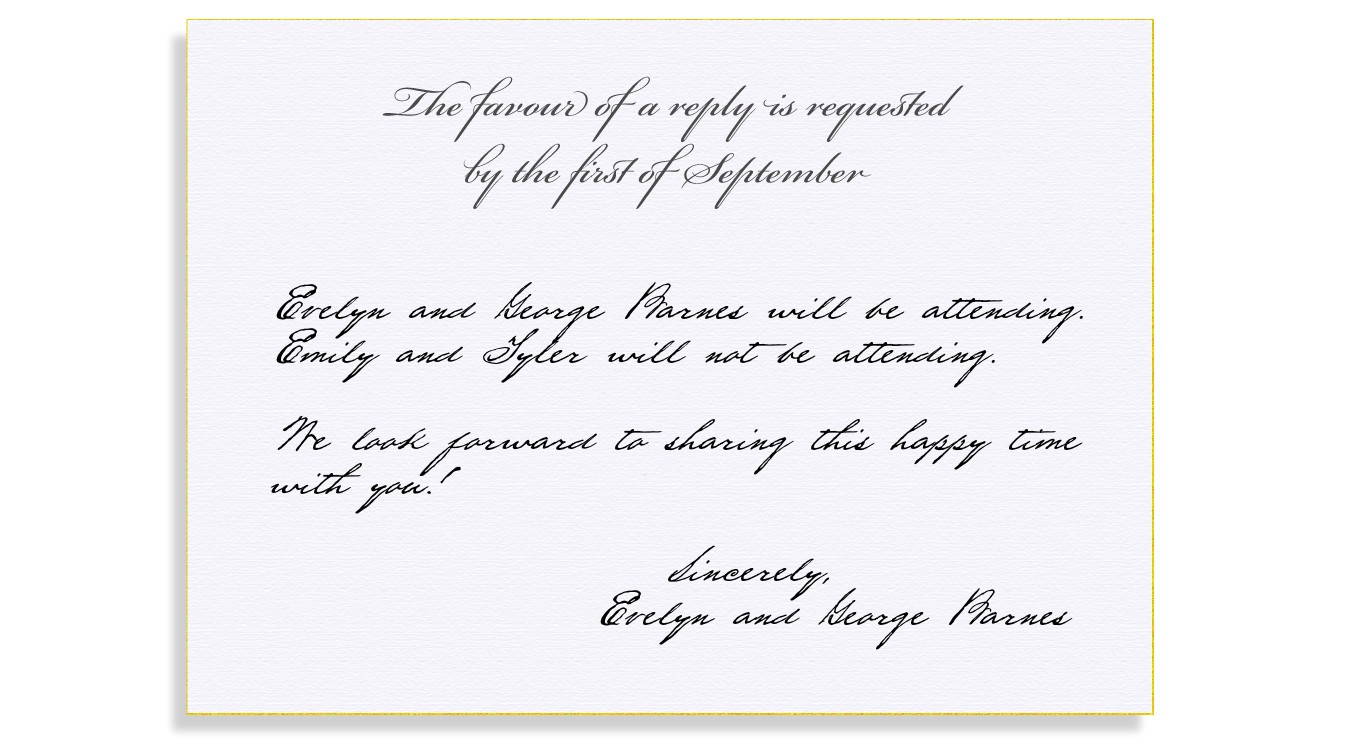 The favour of a reply is requested
by the first of September
Evelyn and George Barnes will be attending.
Emily and Tyler will not be attending.
We look forward to sharing this happy time
with you!
Sincerely,
Evelyn and George Barnes